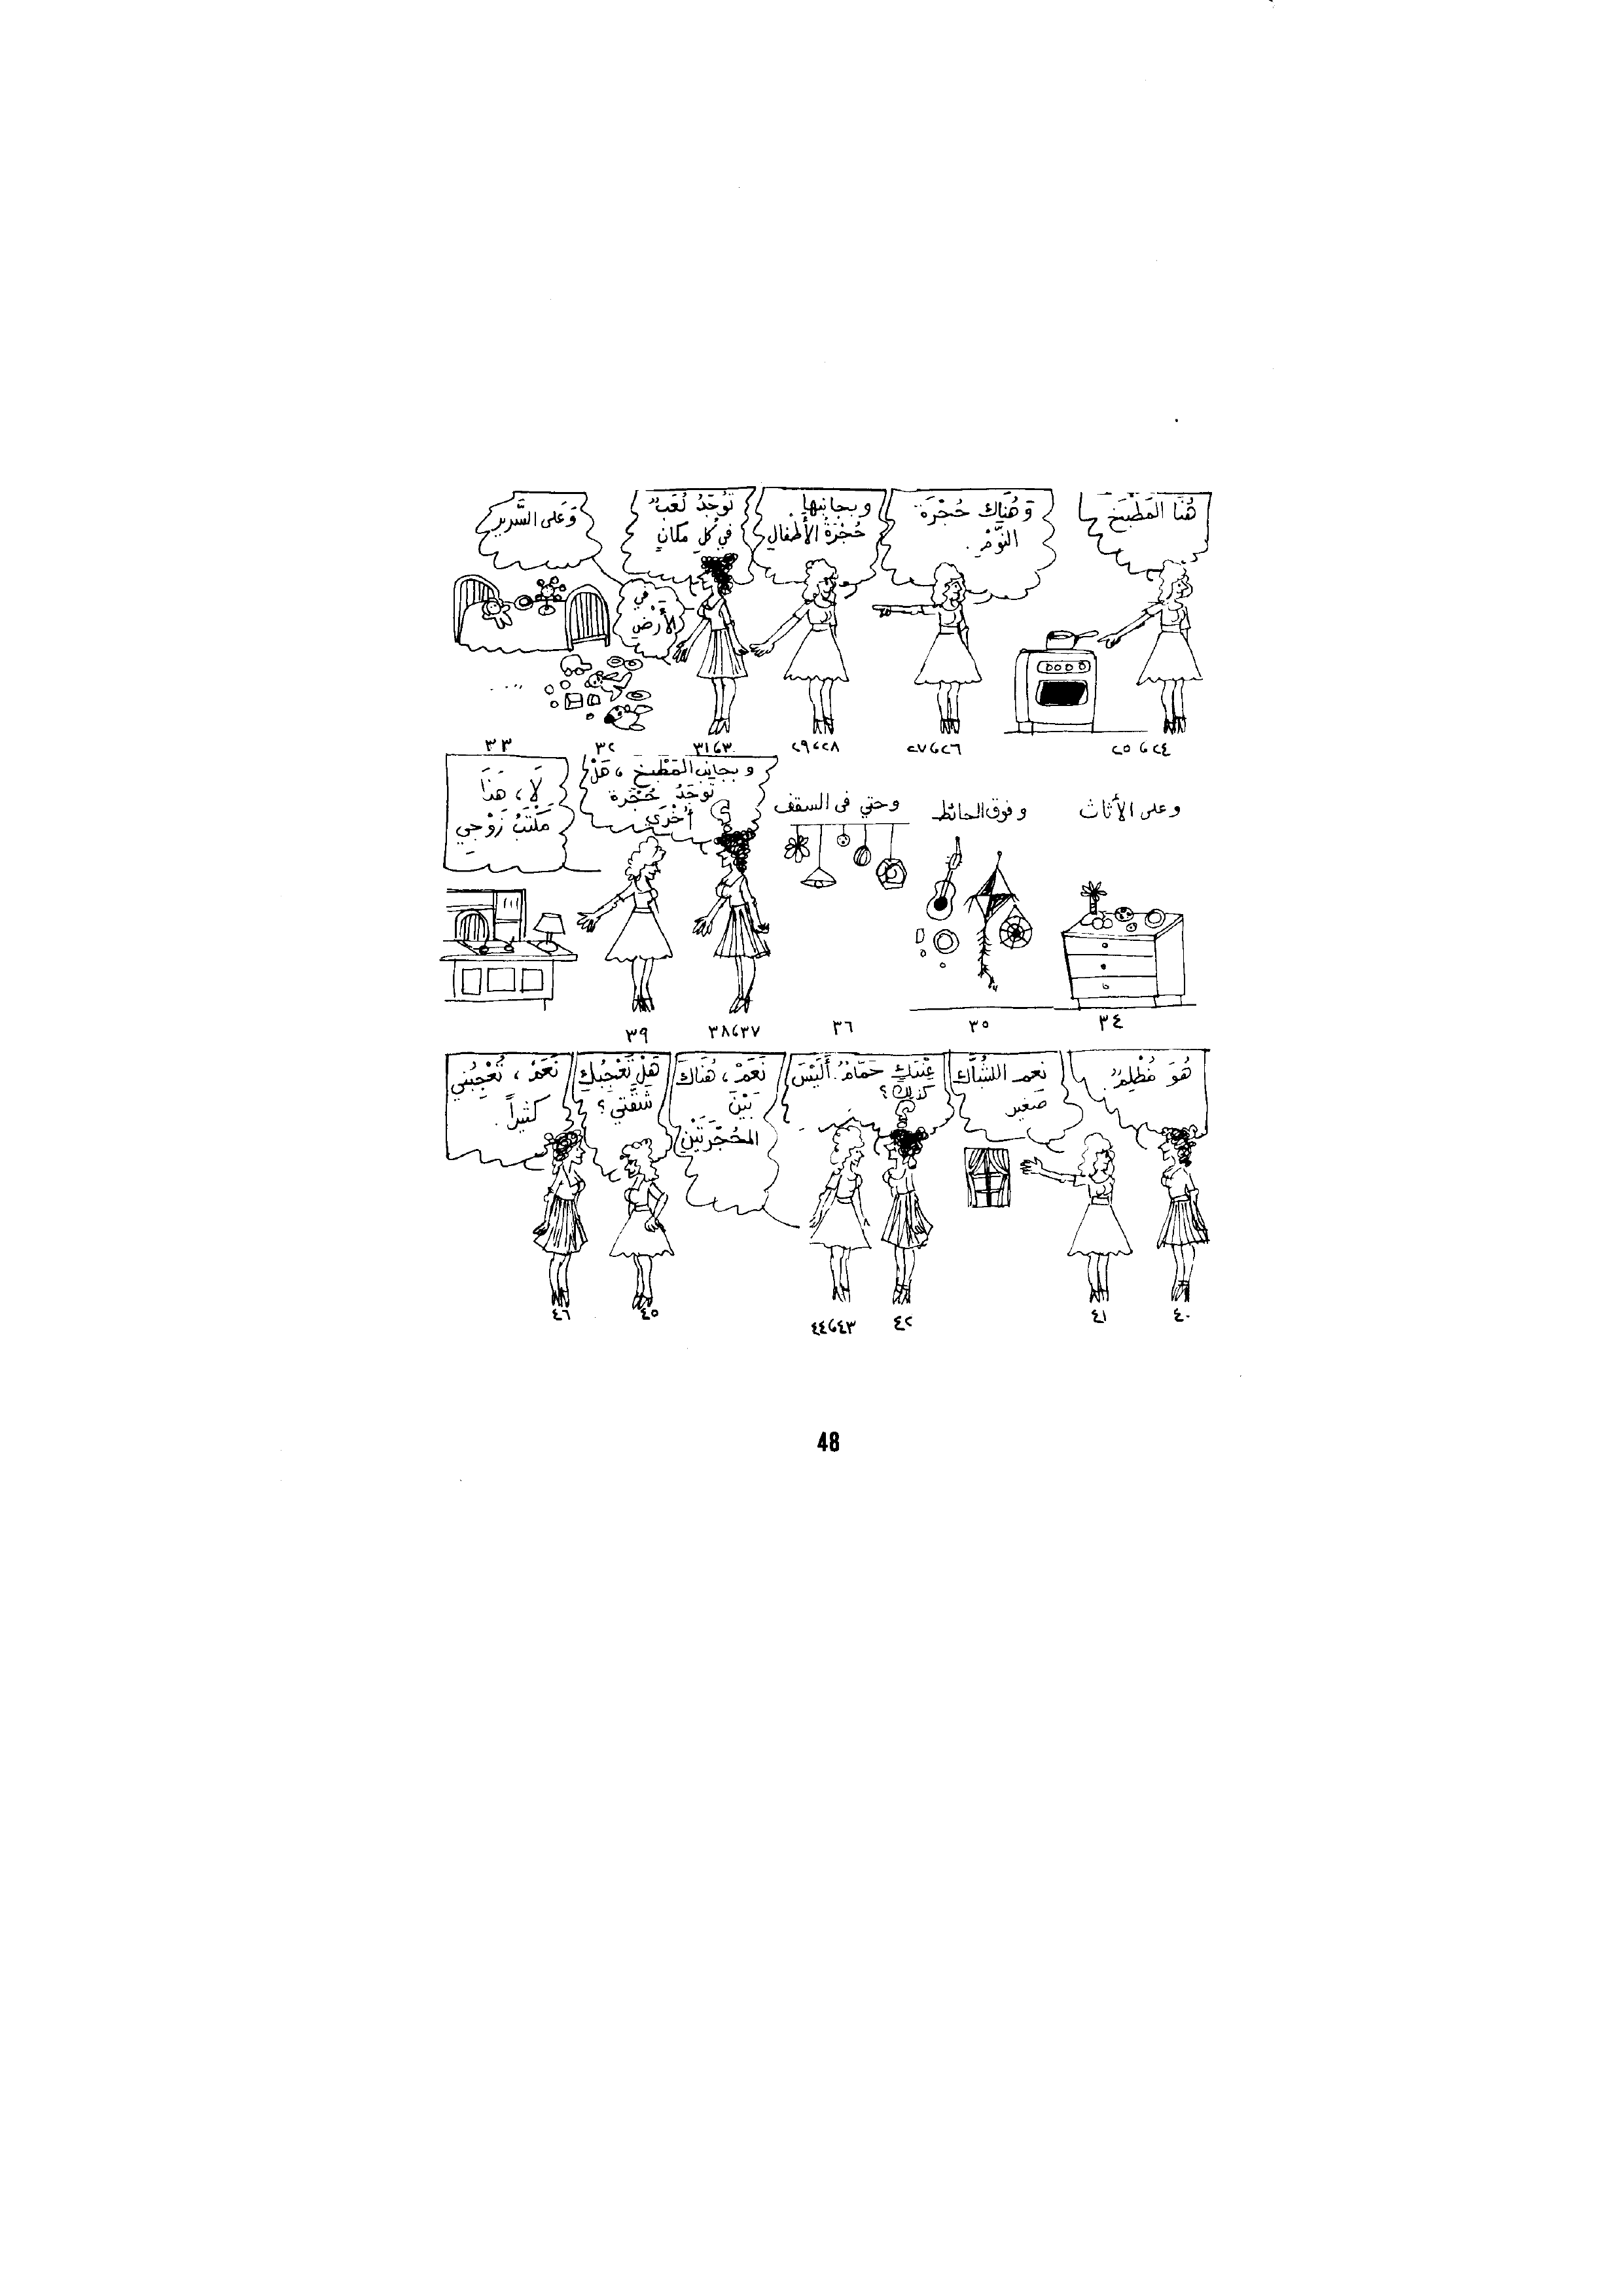 هُنَا المَطْبَخ
وَهُنَاك حُجْرَة
النَّوْمْ.
وبجانبها
حُجْرَةُ الأَطْفالِ
تُوجَدُ لُعَبٌ
في كُلِ مكانٍ
في
الأَرْضِ
وَعَلى السَّرير
٢٤ ، ٢٥
٢٦ ، ٢٧
٢٨ ، ٢٩
٣٠ ، ٣١
٣٢
٣٣
وعلى الأَثاث
وفوق الحائط
وحتي فى السقف
وبجانِب المَطْبخ ، هَلْ
تُوجَدُ حُجْرة
أُخْرَي ؟
لَا، هَذَا
مَكْتَبُ زَوْجِي
٣٤
٣٥
٣٦
٣٧ ، ٣٨
٣٩
هُوَ مُظْلِمٌ.
نعم الشُبَّاك
صَغير
عِنْدَكِ حَمَّامُ. أَلَيْسَ
كذلك؟
نَعَمْ ، هُنَاكَ
بَيْنَ
الحُجْرَتَيْنِ
هَلْ تُعْجِبُكِ
شَقَّتِي؟
نَعَمْ ، تُعْجِبُني
كثيراً.
٤٠
٤١
٤٢
٤٣ ، ٤٤
٤٥
٤٦
48